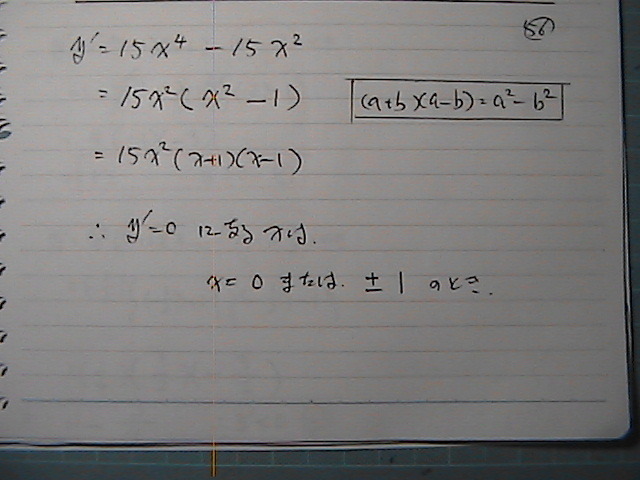 56
y' = 15x⁴ - 15x²
= 15x²(x² - 1)
(a+b)(a-b) = a² - b²
= 15x²(x+1)(x-1)
∴ y' = 0 になる xは.
x = 0 または. ± 1 のとき.